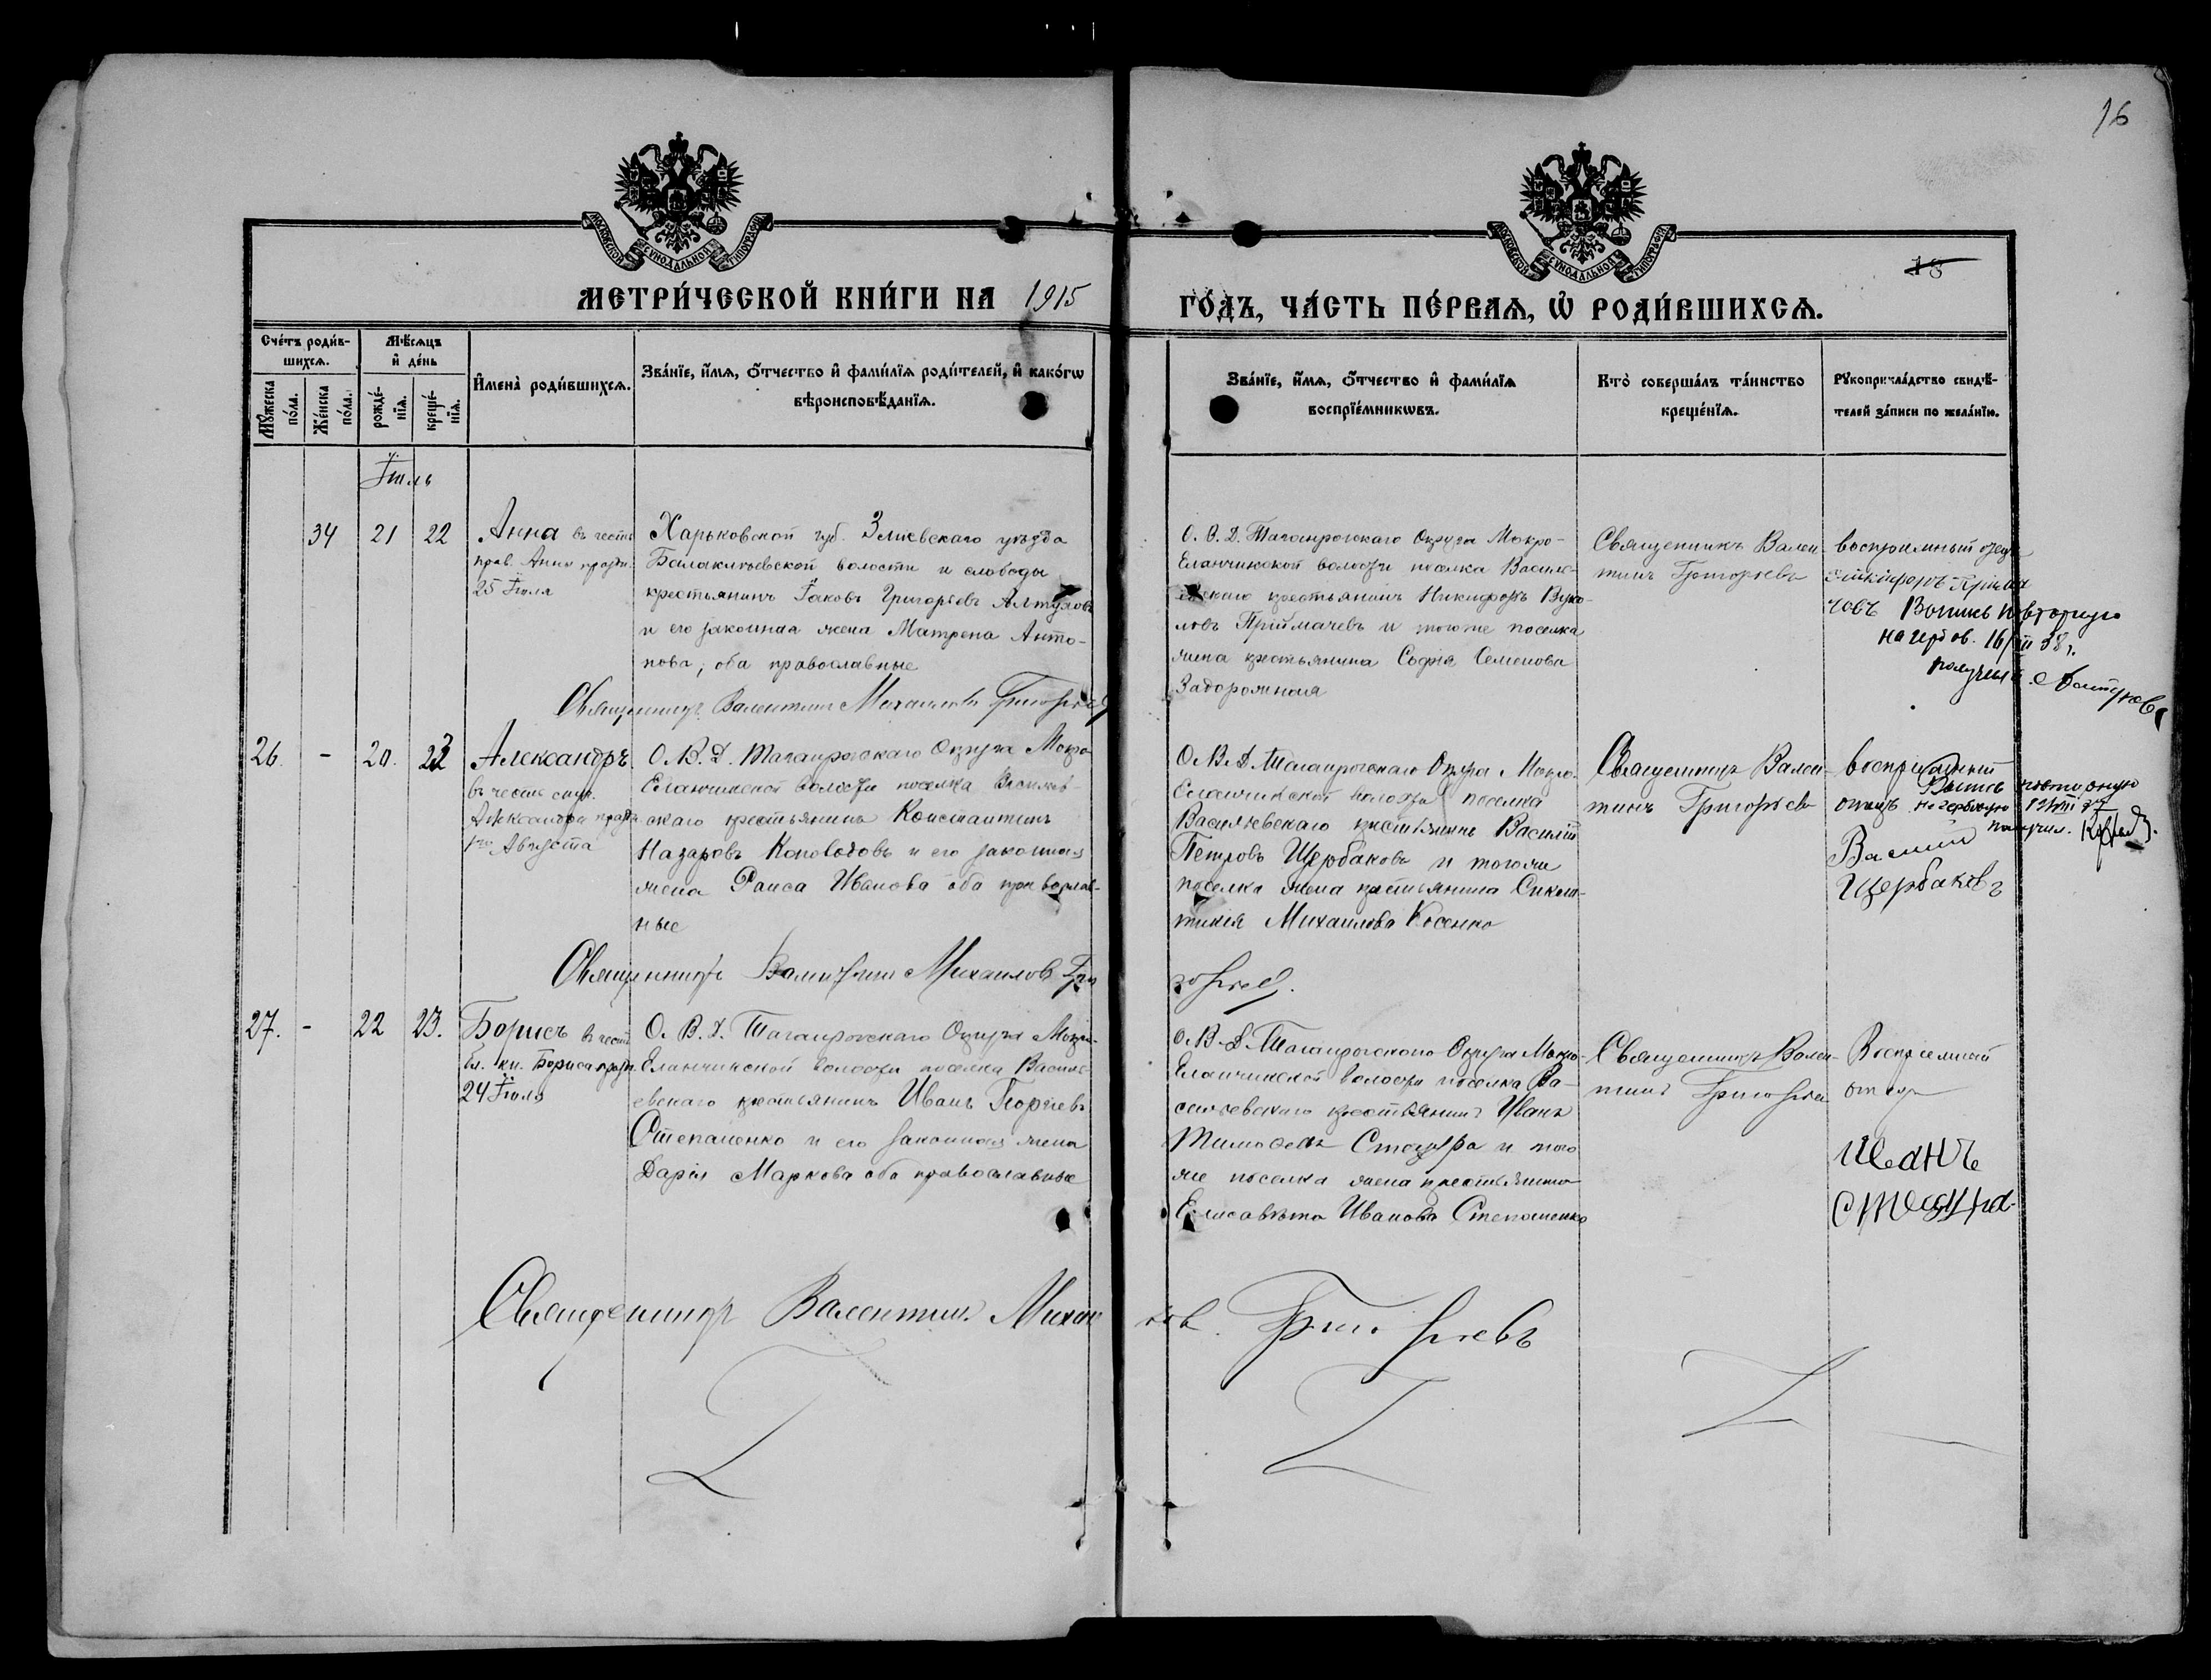 16
МОСКОВСКОЙ СѴНОДАЛЬНОЙ ТИПОГРАФІИ
МОСКОВСКОЙ СѴНОДАЛЬНОЙ ТИПОГРАФІИ
18
МЕТРИ́ЧЕСКОЙ КНИ́ГИ НА 1915
ГО́ДЪ, ЧА́СТЬ ПЕ́РВАѦ, Ѡ҆ РОДИ́ВШИХСѦ.
Сче́тъ роди́в-
шихсѧ.
Мꙋ́жеска по́ла.
Же́нска по́ла.
Мѣ́сѧцъ
и҆ де́нь
рожде́-
нїѧ.
креще́-
нїѧ.
И҆мена̀ роди́вшихсѧ.
Зва́нїе, и҆́мѧ, ѻ҆́тчество и҆ фами́лїѧ роди́телей, и҆ како́гѡ
вѣроисповѣ́данїѧ.
Зва́нїе, и҆́мѧ, ѻ҆́тчество и҆ фами́лїѧ
воспрїе́мникѡвъ.
Кто̀ соверша́лъ та́инство
креще́нїѧ.
Рꙋкоприкла́дство свидѣ́-
телей за́писи по жела́нїю.
Іюль
34 21 22
Анна въ честь
прав. Анны празд.
25 Іюля
Харьковской губ. Зміевскаго уѣзда
Балаклеевской волости и слободы
крестьянинъ Іаковъ Григорьевъ Алтуховъ
и его законная жена Матрена Анто-
нова, оба православные
О. В. Д. Таганрогскаго Округа Мокро-
Еланчикской волости поселка Василь-
евскаго крестьянинъ Никифоръ Вуко-
ловъ Пріймачевъ и тогоже поселка
жена крестьянина Софія Семенова
Задорожная
Священникъ Вален-
тинъ Григорьевъ
воспріемный отецъ
Никифоръ Прійма
човъ
повторную
на гербов. 16/III 38 г.
получил Алтухов
Священникъ Валентинъ Михаиловъ Григорьевъ
26. - 20. 23
Александръ
въ честь
Александра празд.
1го Августа
О. В. Д. Таганрогскаго Округа Мокро-
Еланчикской волости поселка Васильев-
скаго крестьянинъ Константинъ
Назаровъ Коноводовъ и его законная
жена Раиса Иванова оба православ-
ные
О. В. Д. Таганрогскаго Округа Мокро-
Еланчикской волости поселка
Васильевскаго крестьянинъ Василій
Петровъ Щербаковъ и тогоже
поселка жена крестьянина Синкли-
тикія Михаилова Косенко
Священникъ Вален-
тинъ Григорьевъ
воспріемный
отецъ
Василій
Щербаковъ
повторную
на гербовую
получил.
Священникъ Валентинъ Михаилов Гри
горьевъ.
27. - 22 23.
Борисъ въ честь
бл. кн. Бориса празд.
24 Іюля
О. В. Д. Таганрогскаго Округа Мокро-
Еланчикской волости поселка Василь-
евскаго крестьянинъ Иванъ Георгіевъ
Степаненко и его законная жена
Дарія Маркова оба православные
О. В. Д. Таганрогскаго Округа Мокро-
Еланчикской волости поселка Ва-
сильевскаго крестьянинъ Иванъ
и того
же поселка жена крестьянина
Елисавета Иванова Степаненко
Священникъ Вален-
тинъ Григорьевъ
Воспріемный
отецъ
Иванъ
Священникъ Валентинъ Михаи
лов. Григорьевъ